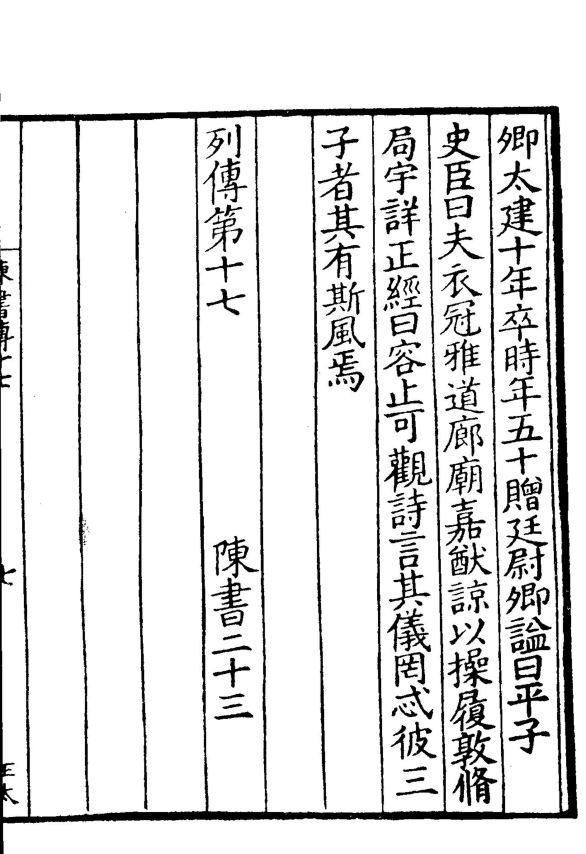 卿太建十年卒時年五十贈廷尉卿謚曰平子
史臣曰夫衣冠雅道廊廟嘉猷諒以操履敦脩
局宇詳正經曰容止可觀詩言其儀罔忒彼三
子者其有斯風焉
列傳第十七 陳書二十三
陳書傳十七
七